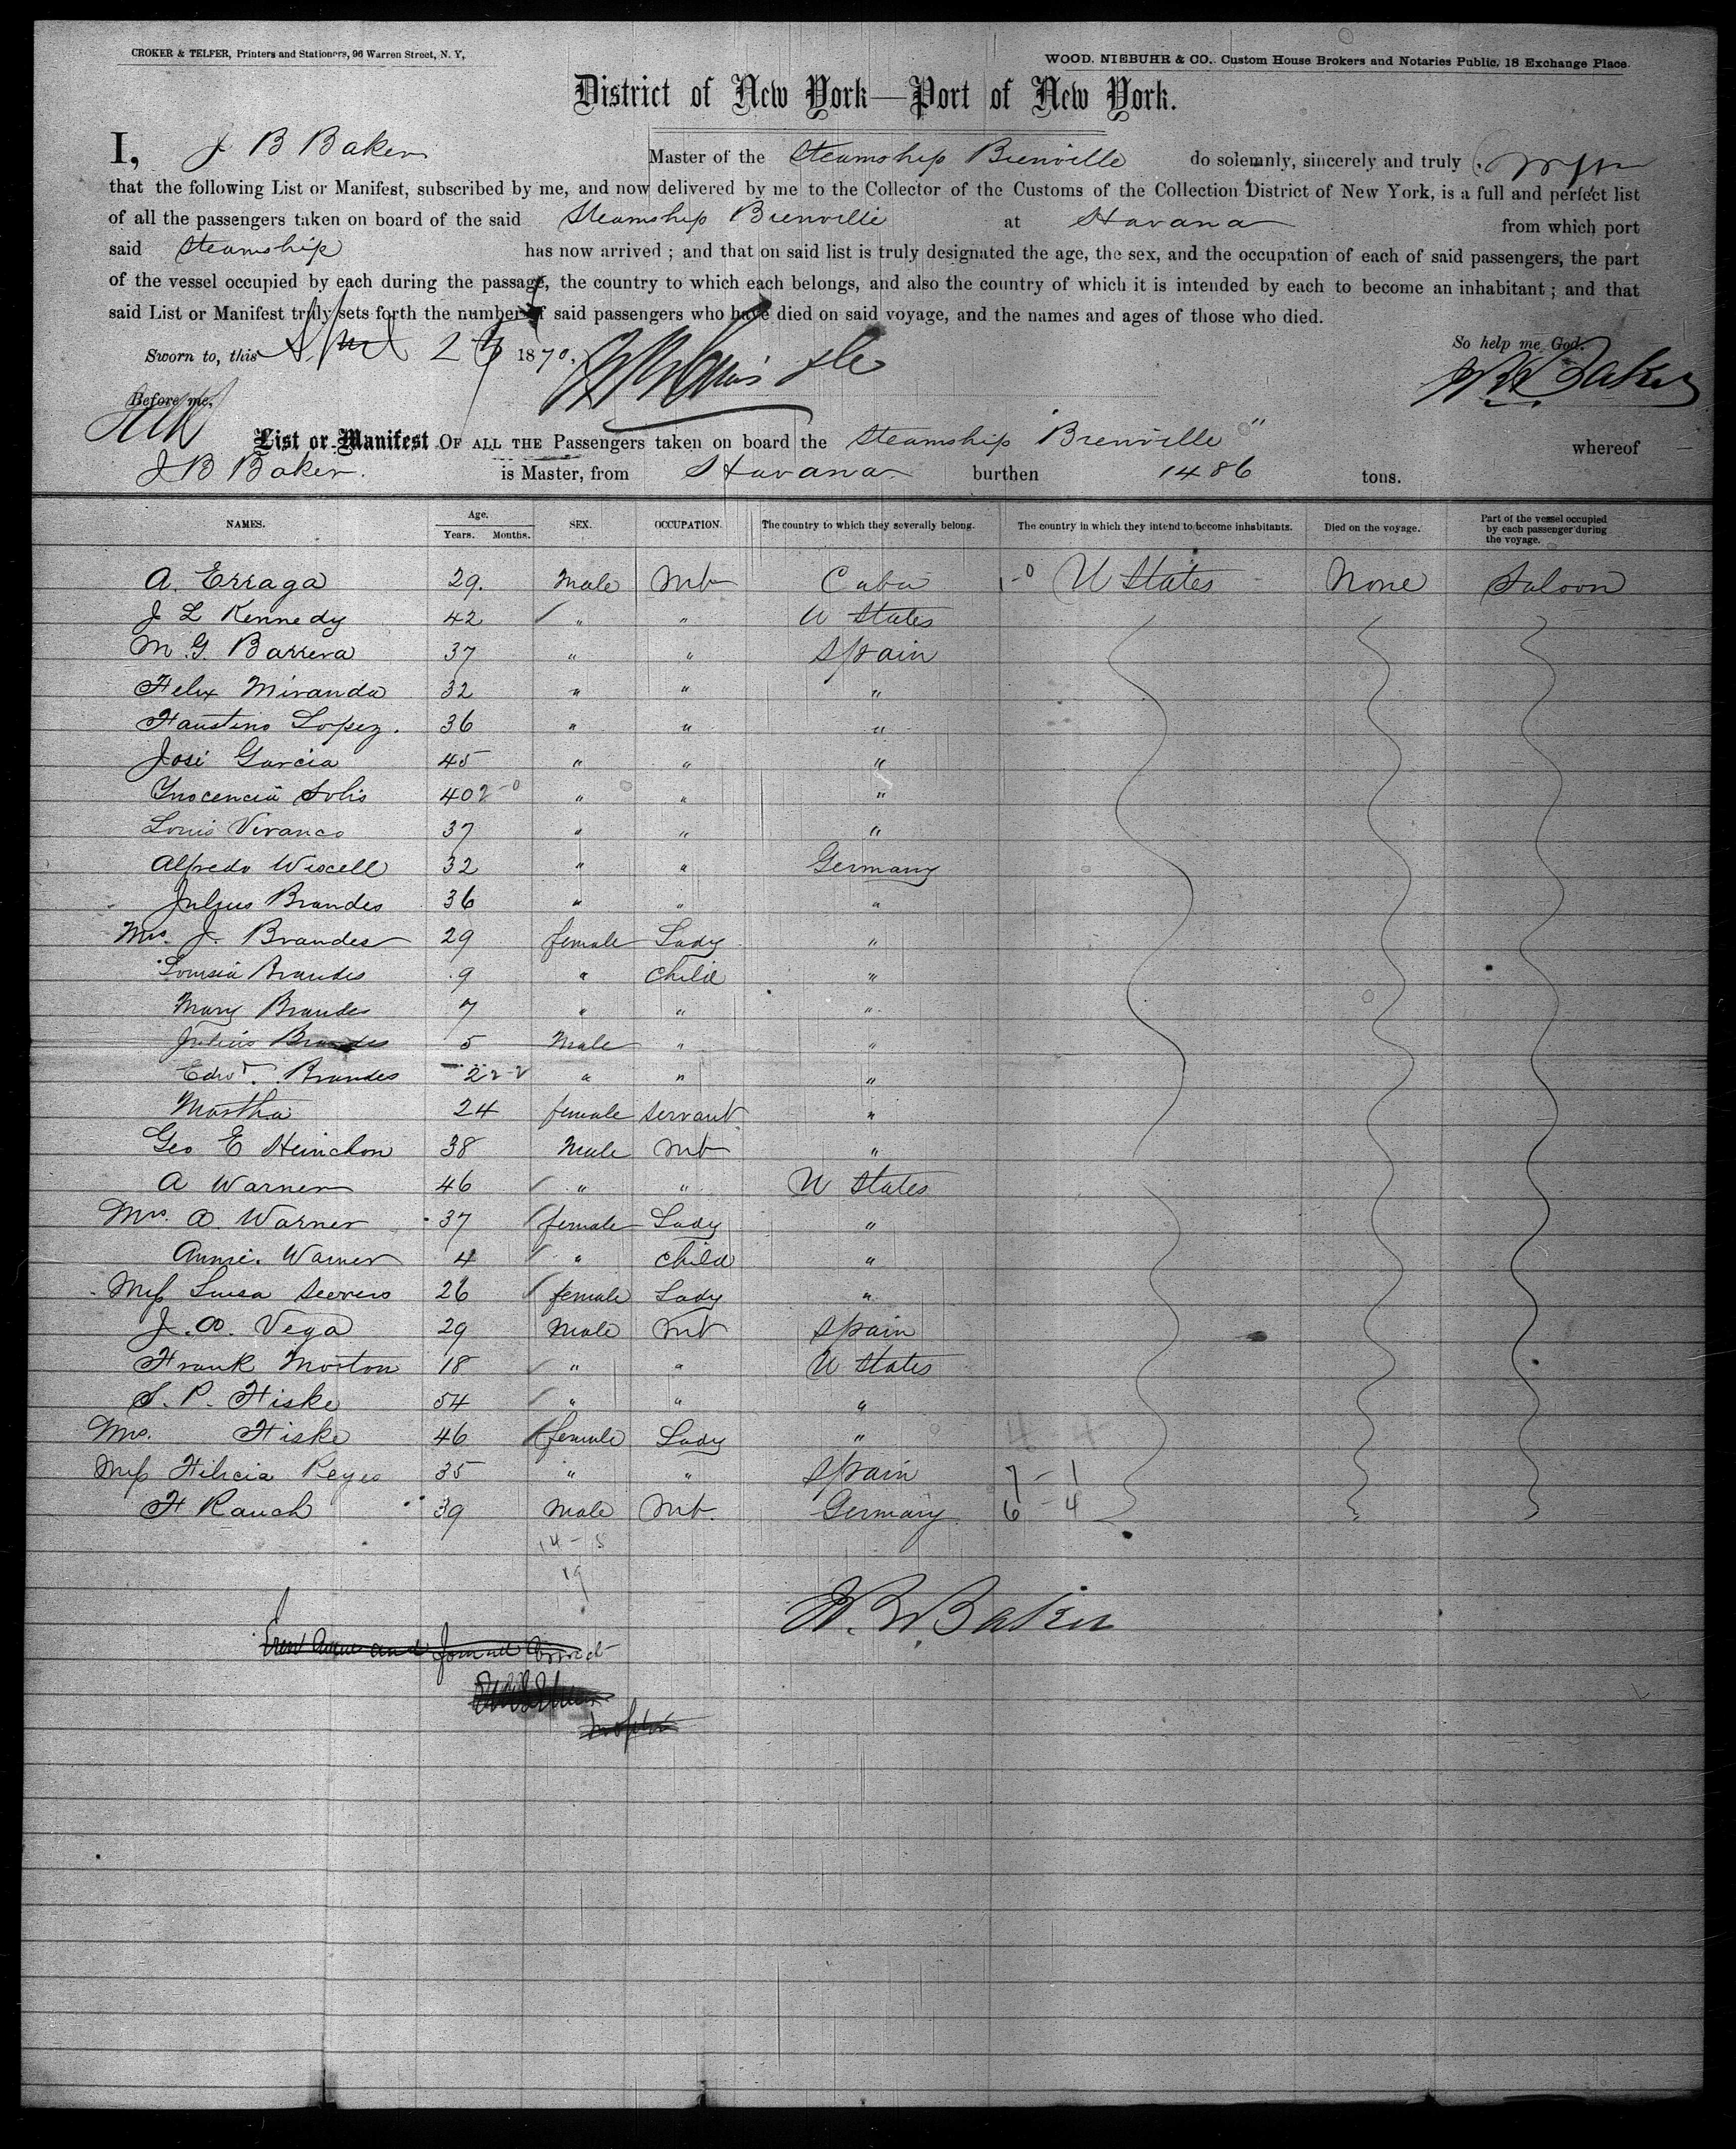 CROKER & TELFER, Printers and Stationers, 96 Warren Street, N. Y,
WOOD, NIEBUHR & CO. Custom House Brokers and Notaries Public, 18 Exchange Place.
District of New York—Port of New York.
I, J B Baker Master of the Steamship Bienville do solemnly, sincerely and truly
that the following List or Manifest, subscribed by me, and now delivered by me to the Collector of the Customs of the Collection District of New York, is a full and perfect list
of all the passengers taken on board of the said Steamship Bienville at Havana from which port
said Steamship has now arrived ; and that on said list is truly designated the age, the sex, and the occupation of each of said passengers, the part
of the vessel occupied by each during the passage, the country to which each belongs, and also the country of which it is intended by each to become an inhabitant ; and that
said List or Manifest truly sets forth the number of said passengers who have died on said voyage, and the names and ages of those who died.
Sworn to, this April 1870, So help me God.
Before me, Baker
List or Manifest OF ALL THE Passengers taken on board the Steamship Bienville " whereof
J B Baker. is Master, from Havana. burthen 1486 tons.
NAMES. Age. Years. Months. SEX. OCCUPATION. The country to which they severally belong. The country in which they intend to become inhabitants. Died on the voyage. Part of the vessel occupied by each passenger during the voyage.
A. Erraga 29. Male Mt Cuba 1-0 U States None Saloon
J L Kennedy 42 " " U States
M. G. Barrera 37 " " Spain
Felix Miranda 32 " " "
Faustino Lopez. 36 " " "
José Garcia 45 " " "
Inocencia Solis 40 2-0 " " "
Louis Vivanco 37 " " "
Alfredo Wiscell 32 " " Germany
Julius Brandes 36 " " "
Mrs. J. Brandes 29 female Lady "
Louisia Brandes 9 " Child "
Mary Brandes 7 " " "
Julius Brandes 5 Male " "
Edwd. Brandes 2 " " "
Martha 24 female servant "
Geo E Heinchon 38 Male Mt "
A Warner 46 " " U States
Mrs. A. Warner 37 female Lady "
Annie. Warner 4 " Child "
Miss Luisa 26 female Lady "
J. A. Vega 29 Male Mt Spain
Frank Morton 18 " " U States
S. P. Fiske 54 " " "
Mrs. Fiske 46 female Lady " 4-4
Miss Filicia Reyes 35 " " Spain 7-1
F Rauch 39 Male Mt. Germany 6-4
14-5
19
Baker